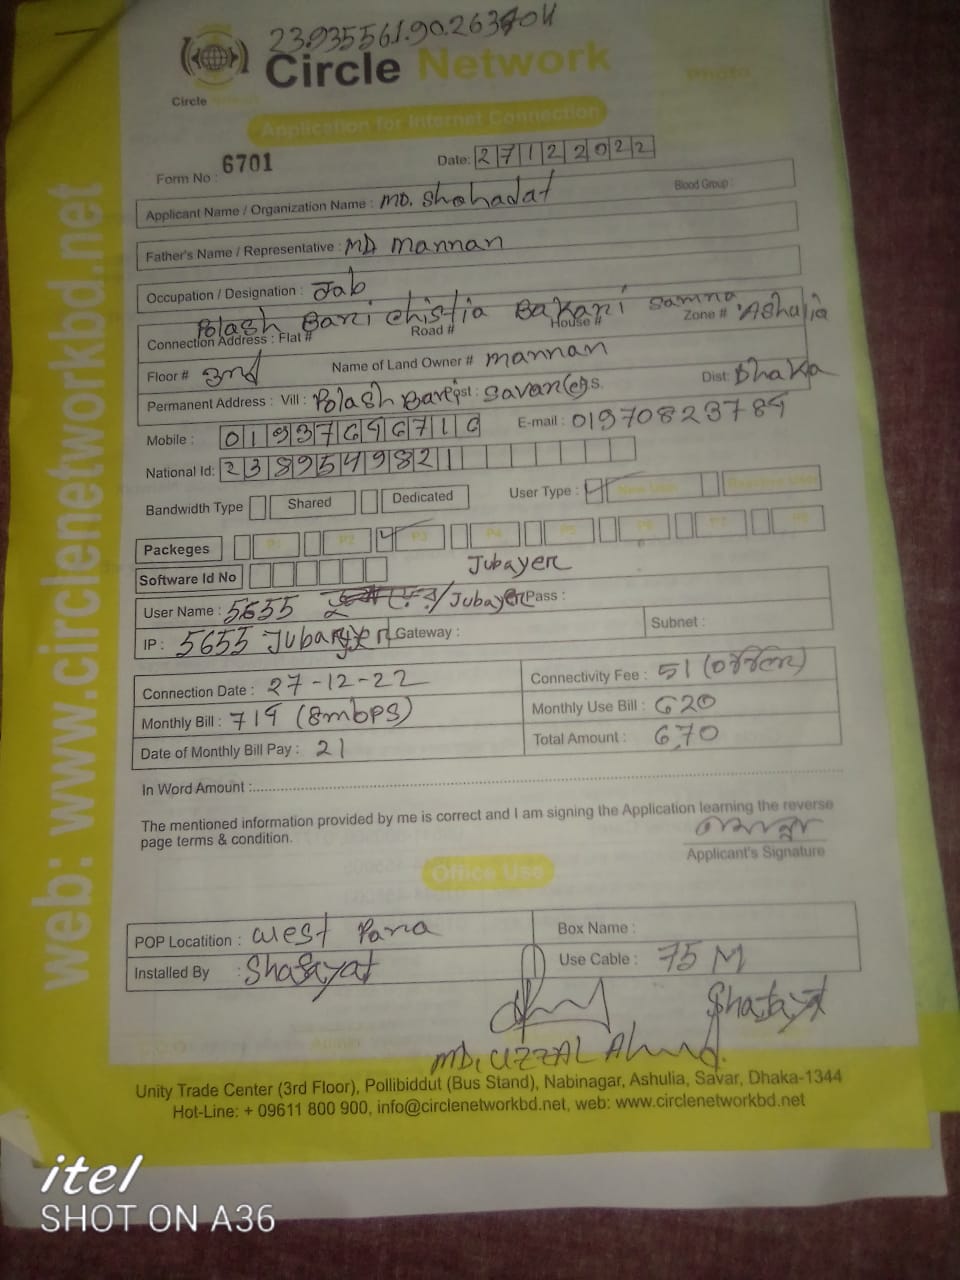 23.935561.90.263404
Circle Network
Circle Network
PHOTO
Application for Internet Connection
Form No : 6701
Date: 27122022
Applicant Name / Organization Name : MD. Shohadat Blood Group :
Father's Name / Representative : MD Mannan
Occupation / Designation : Job
Polash Bari chistia Bakari Samna Ashulia
Connection Address : Flat # Road # House # Zone #
Floor # 3rd Name of Land Owner # mannan
Permanent Address : Vill : Polash Bari Post : Savar P.S. Dist: Dhaka
Mobile : E-mail : 01970823784
National Id: 2389549821
Bandwidth Type Shared Dedicated User Type : New User
Packeges P1 P2 P3 P4 P5 P6 P7 P8
Software Id No Jubayer
User Name : 5655 /Jubayer Pass :
IP : 5655 Jubayer Gateway : Subnet :
Connection Date : 27-12-22 Connectivity Fee : 51
Monthly Bill : 719 (8mbps) Monthly Use Bill : 620
Date of Monthly Bill Pay : 21 Total Amount : 670
In Word Amount :
The mentioned information provided by me is correct and I am signing the Application learning the reverse
page terms & condition.
Applicant's Signature
Office Use
POP Locatition : west Para Box Name :
Installed By : Shafayat Use Cable : 75 M
Shafayat
MD, UZZAL Ahmed.
Unity Trade Center (3rd Floor), Pollibiddut (Bus Stand), Nabinagar, Ashulia, Savar, Dhaka-1344
Hot-Line: + 09611 800 900, info@circlenetworkbd.net, web: www.circlenetworkbd.net
web: www.circlenetworkbd.net
itel
SHOT ON A36